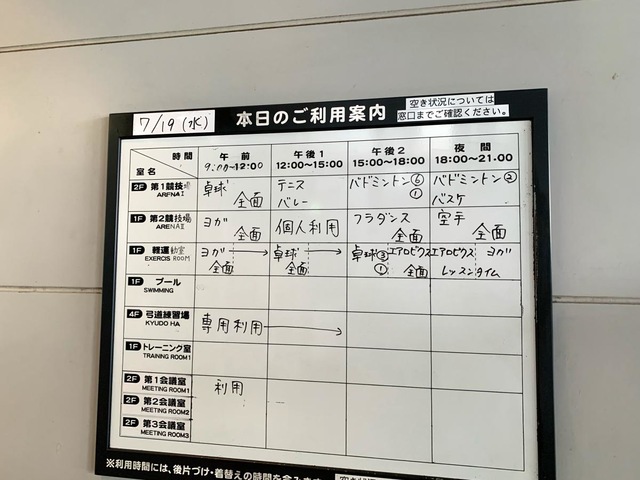 7/19(水) 本日のご利用案内 空き状況については
窓口までご確認ください。
時間 午前 午後1 午後2 夜間
室名 9:00~12:00 12:00~15:00 15:00~18:00 18:00~21:00
2F 第1競技場 卓球 テニス バドミントン⑥ バドミントン②
ARENA I 全面 バレー ① バスケ
1F 第2競技場 ヨガ 個人利用 フラダンス 空手
ARENA II 全面 全面 全面
1F 軽運動室 ヨガ 卓球 卓球③ エアロビクス エアロビクス ヨガ
EXERCIS ROOM 全面 全面 ① 全面 レッスンタイム
1F プール
SWIMMING
4F 弓道練習場 専用利用
KYUDO HA
1F トレーニング室
TRAINING ROOM1
2F 第1会議室 利用
MEETING ROOM1
2F 第2会議室
MEETING ROOM2
2F 第3会議室
MEETING ROOM3
※利用時間には、後片づけ・着替えの時間を含みます